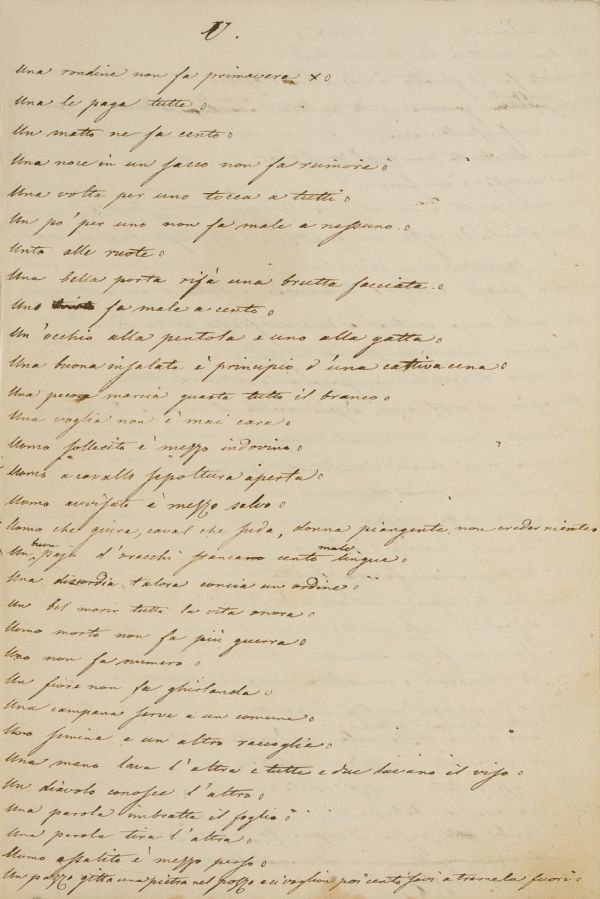 U.
Una rondine non fa primavera x o
Una le paga tutte o
Un matto ne fa cento o
Una noce in un sacco non fa rumore o
Una volta per uno tocca a tutti o
Un po' per uno non fa male a nessuno. o
Unto alle ruote o
Una bella porta rifà una brutta facciata. o
Uno fa male a cento o
Un' occhio alla pentola e uno alla gatta o
Una buona insalata è principio d'una cattiva cena o
Una pecora marcia guasta tutto il branco o
Una voglia non è mai cara o
Uomo sollecito è mezzo indovino o
Uomo a cavallo sepoltura aperta o
Uomo avvisato è mezzo salvo o
Uomo che giura, caval che suda, donna piangente non creder niente o
Un buon pajo d'orecchi stancano cento male lingue o
Una discordia talora concia un ordine o
Un bel morir tutta la vita onora o
Uomo morto non fa più guerra o
Uno non fa numero o
Un fiore non fa ghirlanda o
Una campana serve a un comune o
Uno semina e un altro raccoglie o
Una mano lava l'altra e tutte e due lavano il viso o
Un diavolo conosce l'altro o
Una parola imbratta il foglio o
Una parola tira l'altra o
Uomo assalito è mezzo perso o
Un pazzo gitta una pietra nel pozzo e ci vogliono poi cento savi a trarnela fuori o